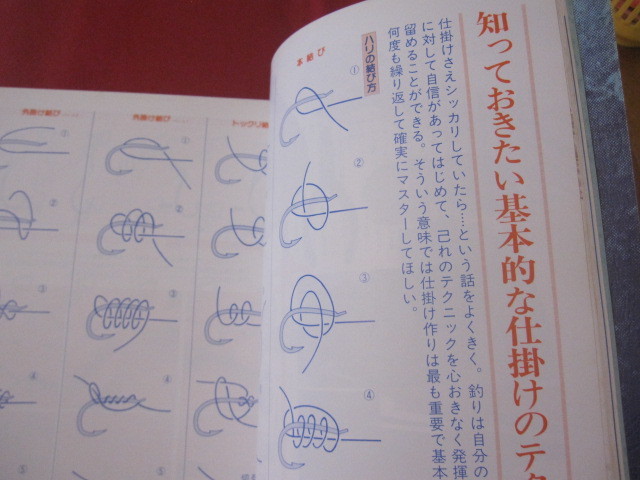 知っておきたい基本的な仕掛けのテク
仕掛けさえシッカリしていたら…という話をよくきく。釣りは自分の
に対して自信があってはじめて、己れのテクニックを心おきなく発揮
留めることができる。そういう意味では仕掛け作りは最も重要で基本
何度も繰り返して確実にマスターしてほしい。
ハリの結び方
本結び
①
②
③
④
トックリ結
①
②
③
④
⑤
外掛け結び
①
②
③
④
⑤